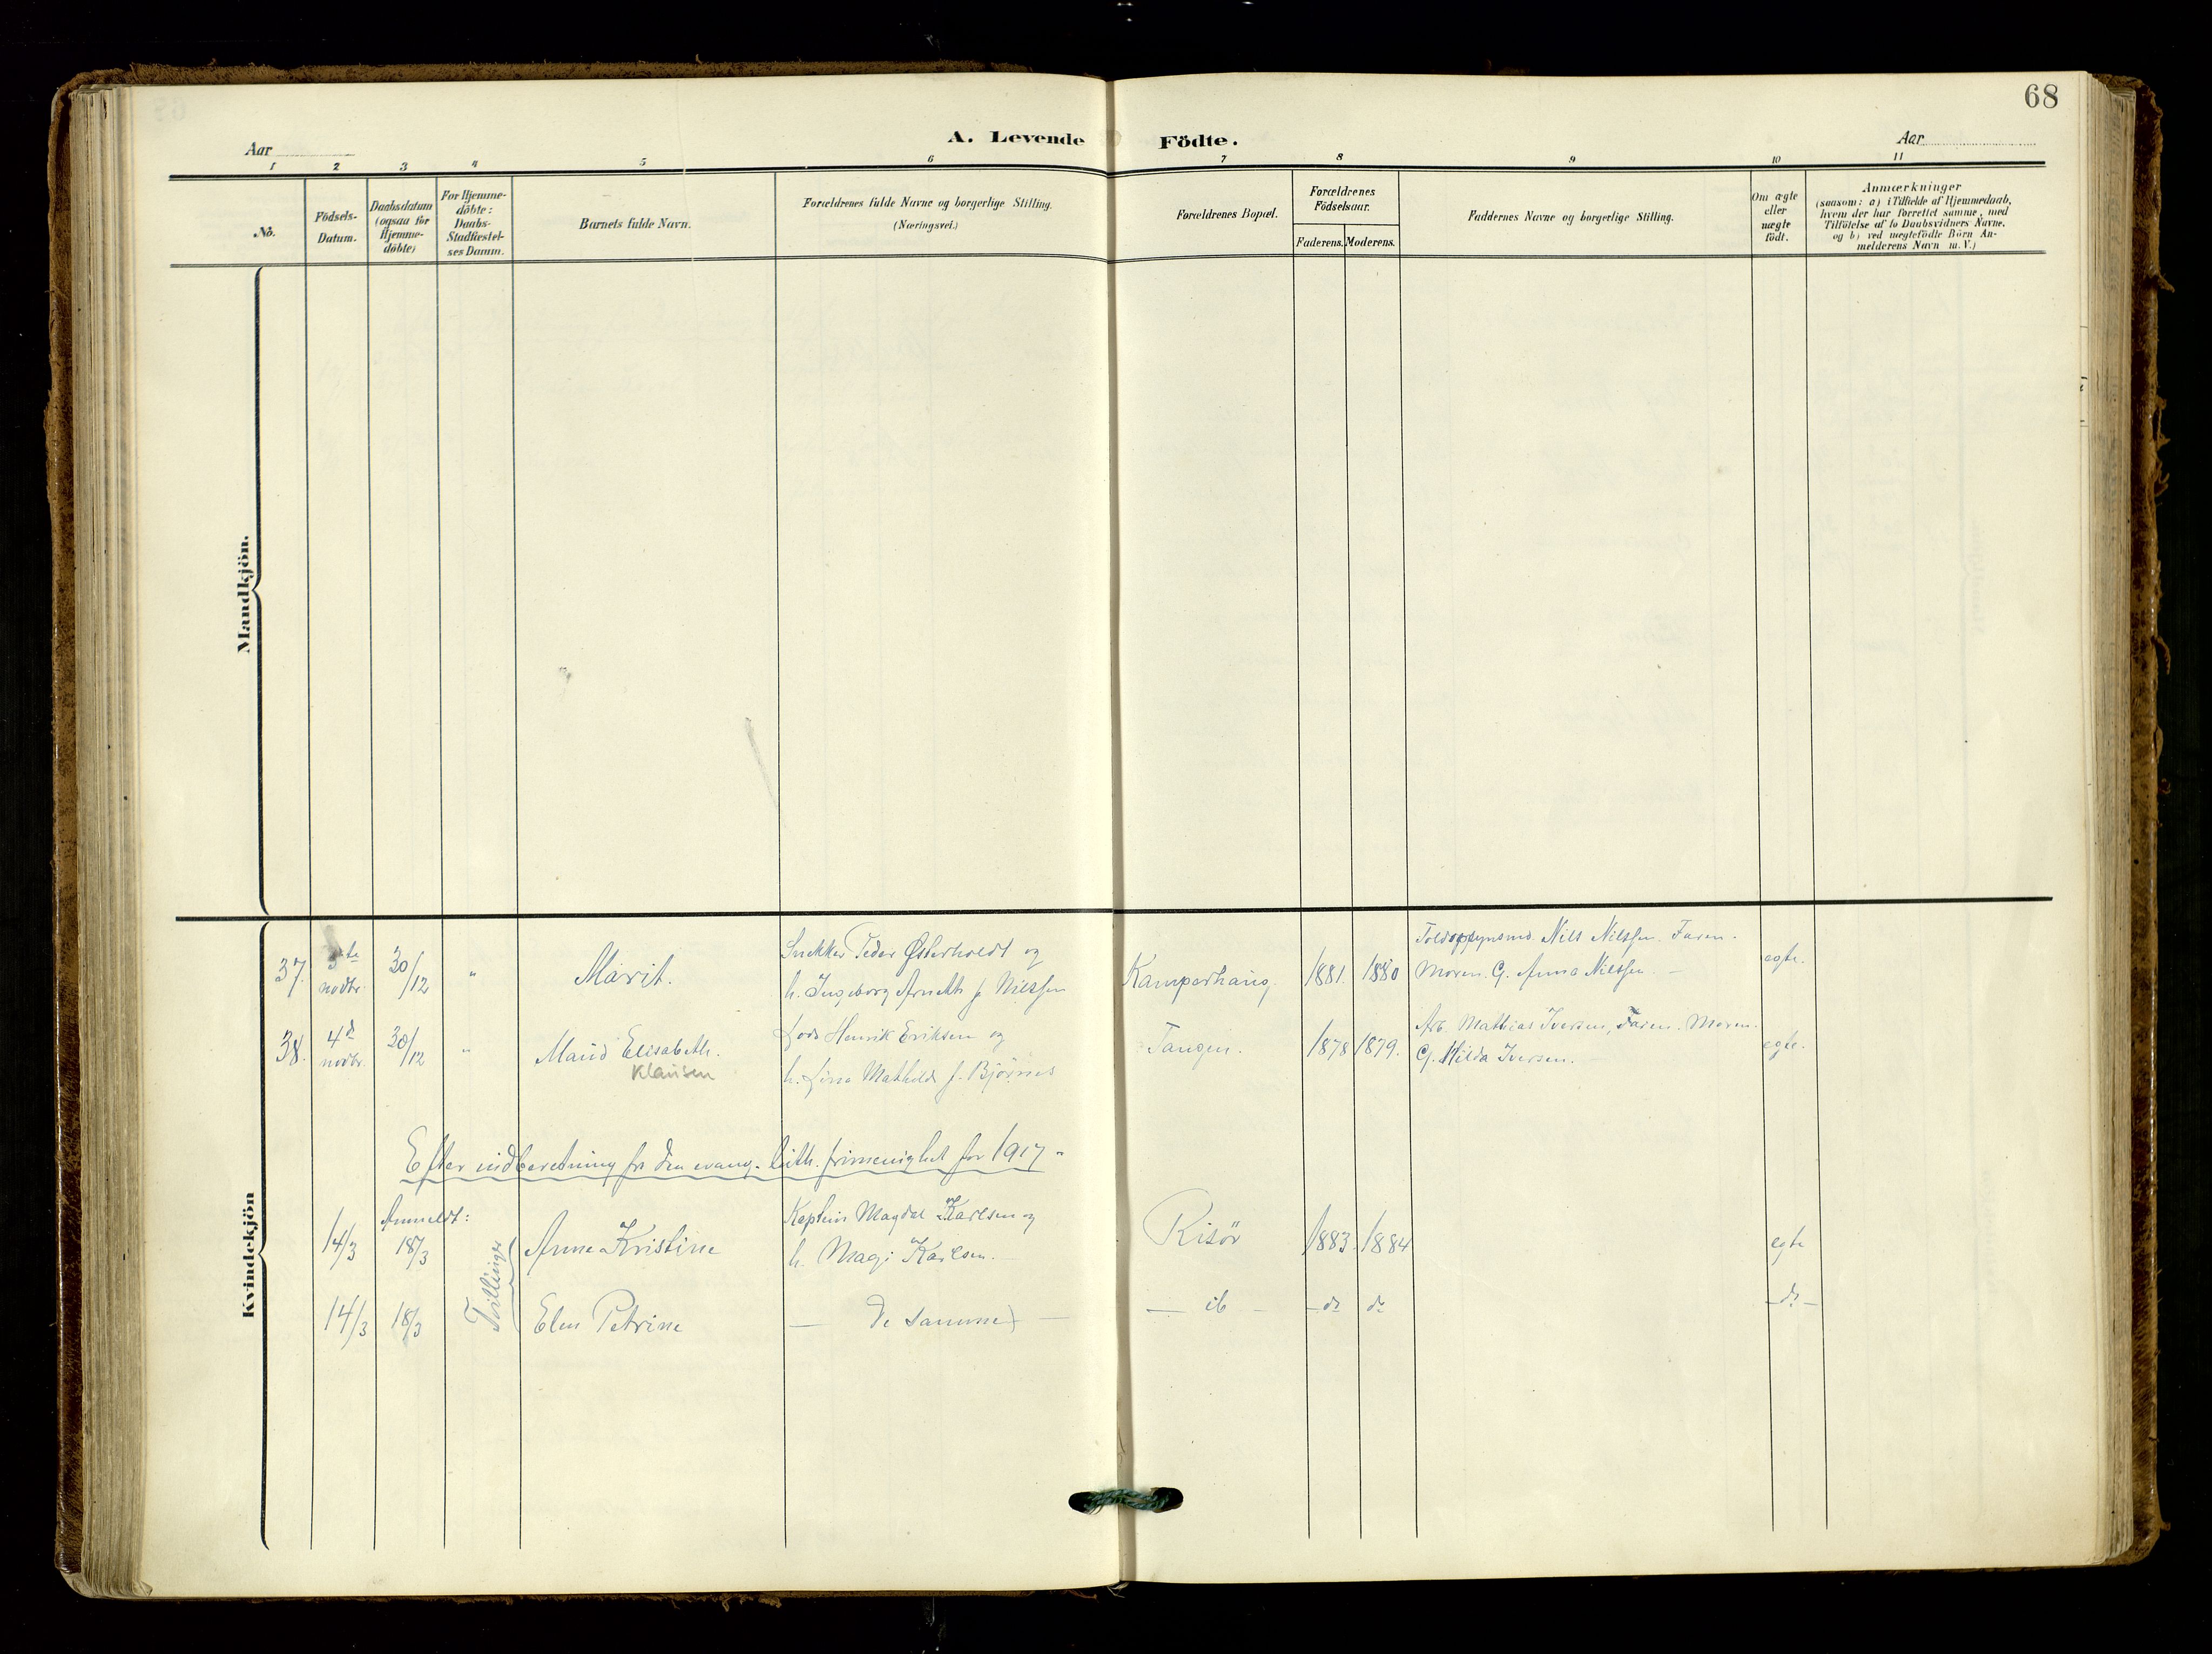 68
A. Levende Födte.
Aar
Aar
1 2 3 4 5 6 7 8 9 10 11
No.
Födsels-
Datum.
Daabsdatum
(ogsaa for
Hjemme-
döbte)
For Hjemme-
döbte:
Daabs-
Stadfæstel-
ses Datum.
Barnets fulde Navn.
Forældrenes fulde Navne og borgerlige Stilling.
(Næringsvei.)
Forældrenes Bopæl.
Forældrenes
Födselsaar.
Faderens. Moderens.
Faddernes Navne og borgerlige Stilling.
Om ægte
eller
uægte
födt.
Anmærkninger
(saasom: a) i Tilfælde af Hjemmedaab,
hvem der har forrettet samme, med
Tilföielse af to Daabsvidners Navne,
og b) ved uægtefödte Börn An-
melderens Navn m.V.)
Mandkjön.
Kvindekjön
37. novbr. 30/12 " Marit. Snekker Peder Østerholdt og
h. Ingeborg f. Nilssen
Kamperhaug. 1881. 1880
Nils Nilssen. Faren.
Moren. G. Anna Nilssen. —
egte.
38. 4d novbr. 30/12 " Maud Elisabeth.
Klausen
Lods Henrik Eriksen og
h. Lina Mathilde f. Bjørnes
Tangen. 1878 1879.
Arb. Mathias Iversen, Faren. Moren.
G. Hilda Iversen.
egte.
Efter indberetning fra den evang. luth. frimenighet for 1917
Anmeldt:
14/3 18/3 Anne Kristine
Kaptein Magdal Karlsen og
h. Magi Karlsen.
Risör 1883. 1884 egte
Tvillinger
14/3 18/3 Elen Petrine — De samme — — ib — — do do — do —